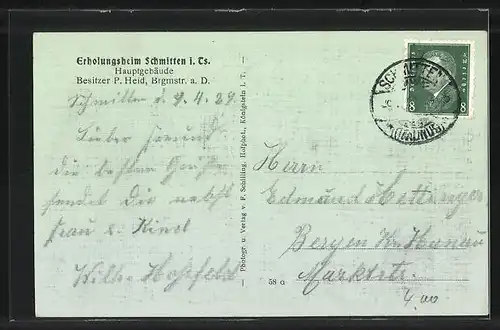 Erholungsheim Schmitten i. Ts.
Hauptgebäude
Besitzer P. Heid, Brgmstr. a. D.
Schmitten d. 9.4.29
Lieber Freund
die besten Grüße
sendet Dir nebst
Frau u. Kind
Wilh. Hoffeld
Photogr. u. Verlag v. P. Schilling, Hofphot., Königstein i. T.
58 a
SCHMITTEN
(TAUNUS)
8 8
Herrn
Edmund Hettinger
Bergen Kr. Hanau
Marktstr.